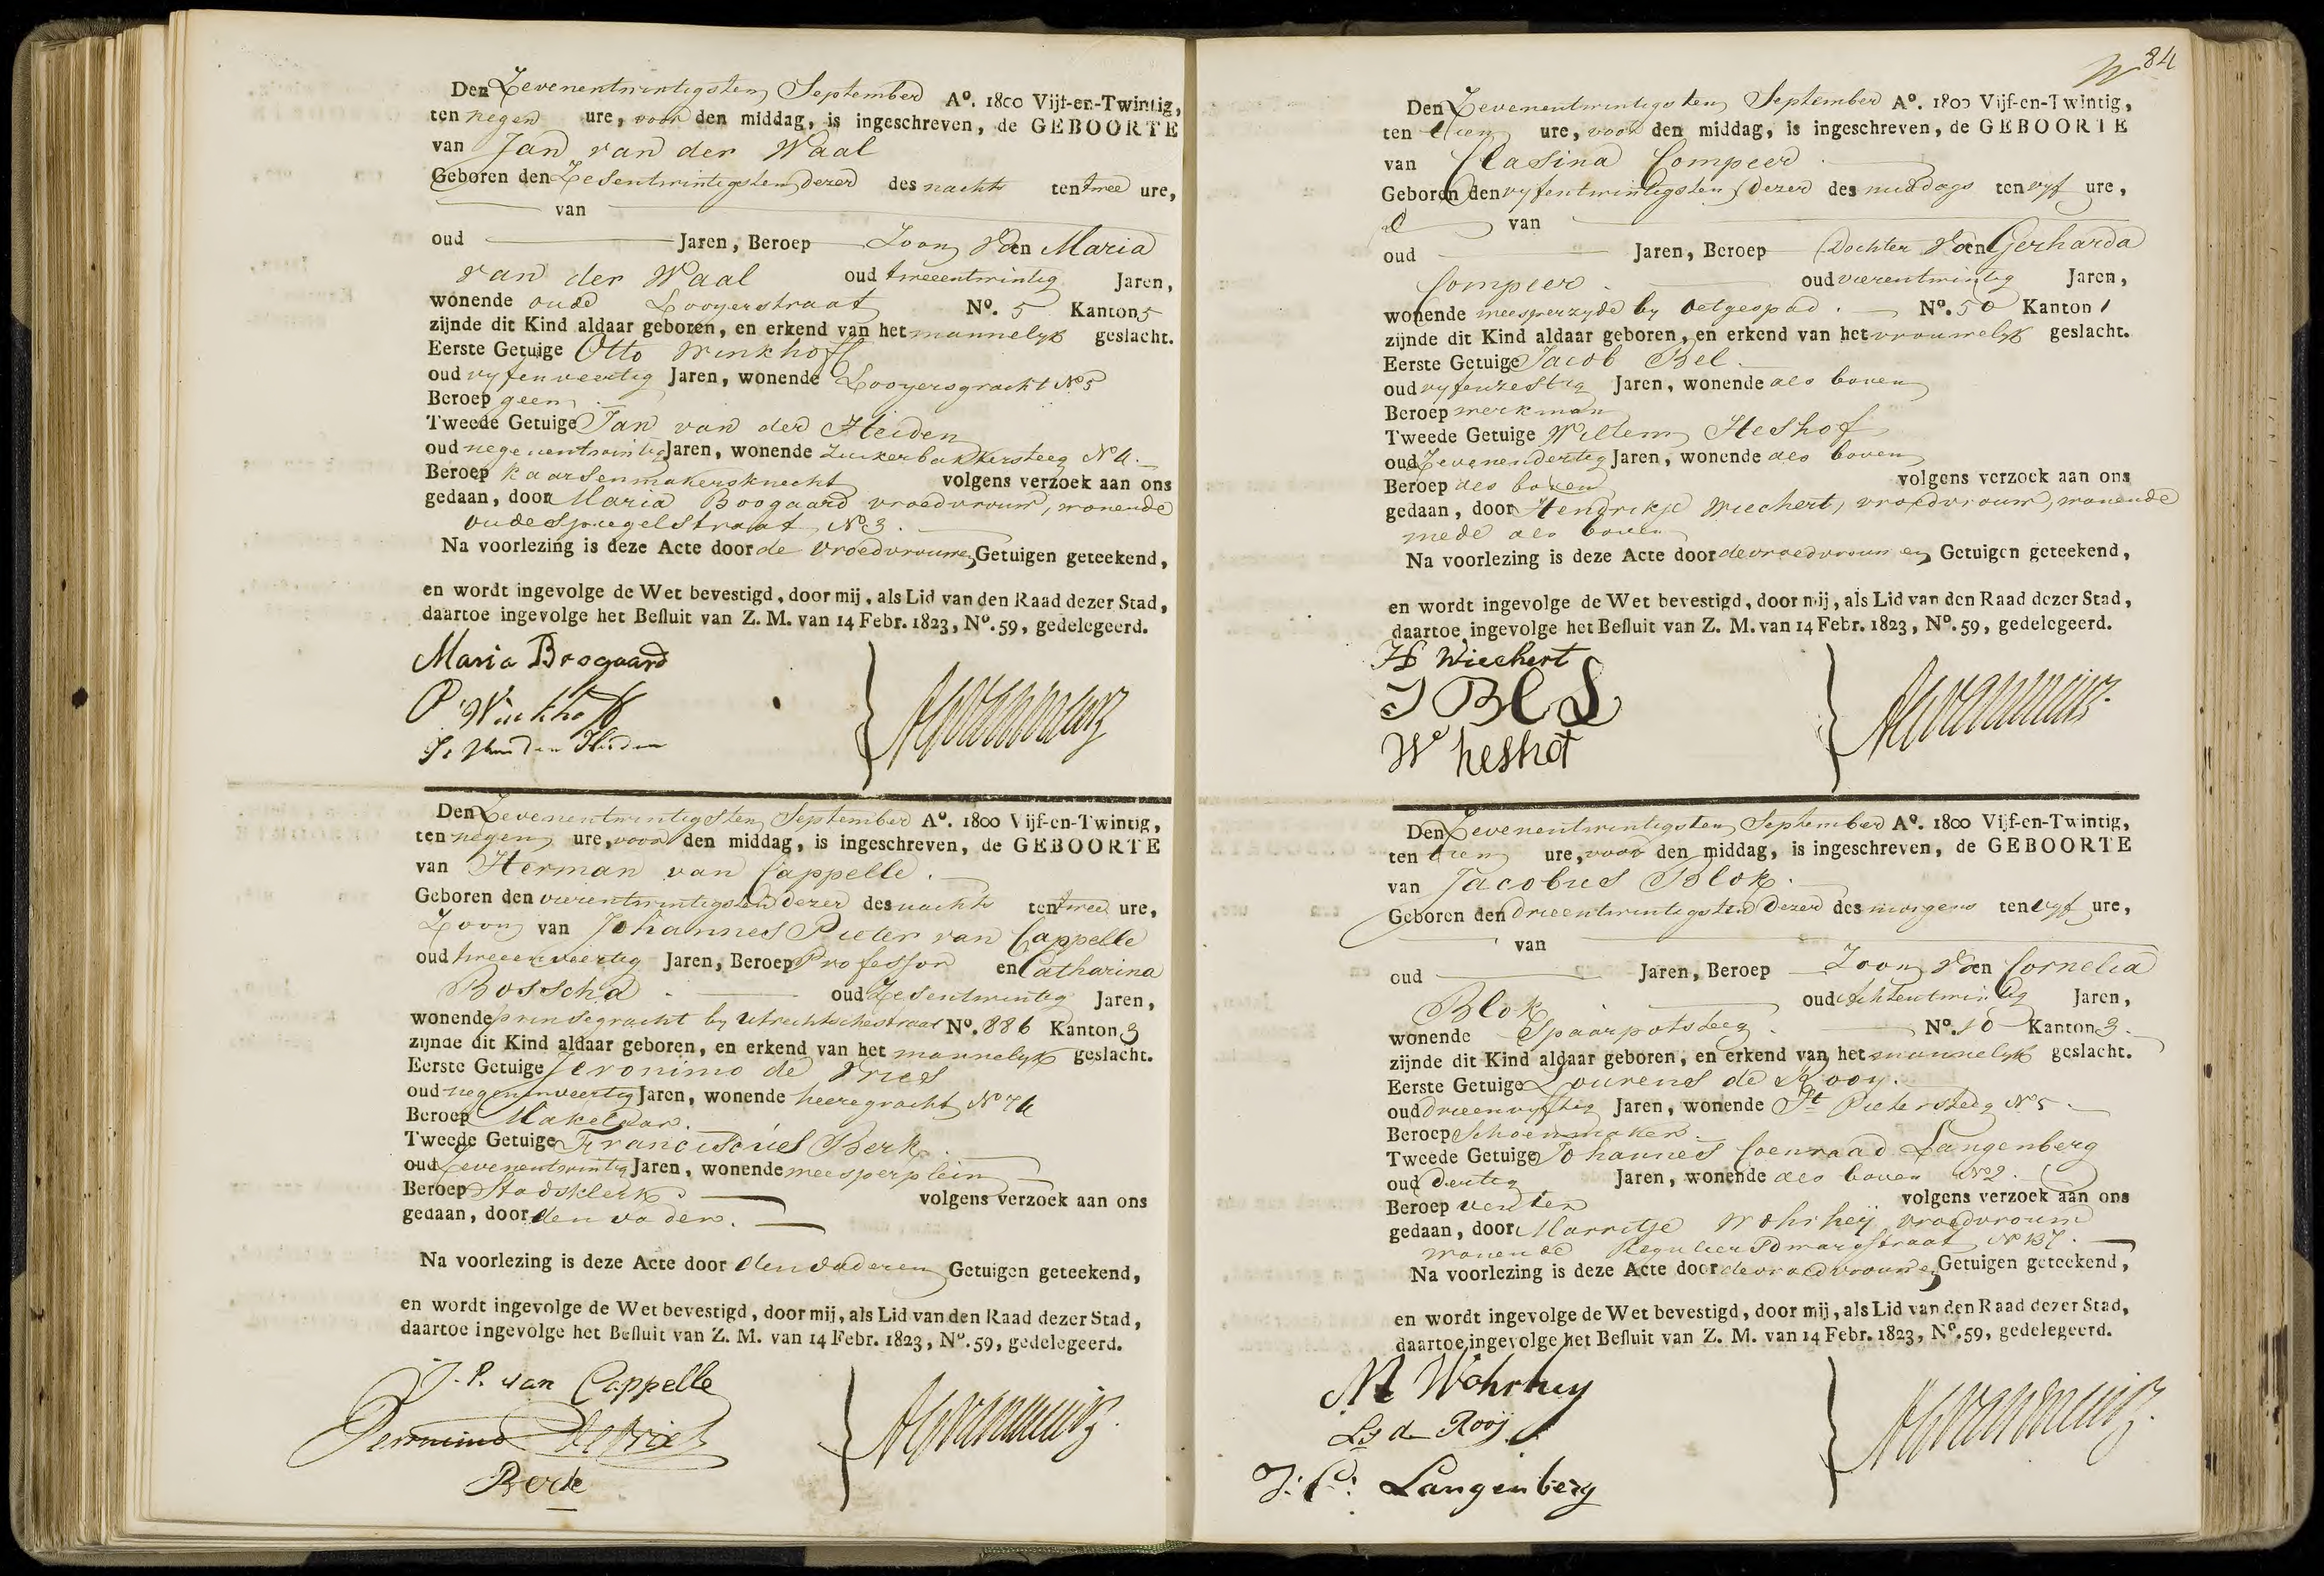 Den Zevenentwintigsten September Aº. 1800 Vijf-en-Twintig,
ten negen ure, voor den middag, is ingeschreven, de GEBOORTE
van Jan van der Waal
Geboren den Zesentwintigsten dezer des nachts ten twee ure,
van
oud Jaren, Beroep Zoon Van Maria
van der Waal oud tweeentwintig Jaren,
wonende oude Looyerstraat Nº. 5 Kanton 5
zijnde dit Kind aldaar geboren, en erkend van het mannelyk geslacht.
Eerste Getuige Otto Winkhoff
oud vyfenveertig Jaren, wonende Looyersgracht Nº 5
Beroep geen
Tweede Getuige Jan van der Heiden
oud negenentwintig Jaren, wonende Zuikerbakkersteeg Nº 4.
Beroep kaarsenmakersknecht volgens verzoek aan ons
gedaan, door Maria Boogaard vroedvrouw, wonende
oude Spiegelstraat Nº 3.
Na voorlezing is deze Acte door de vroedvrouw en Getuigen geteekend,
en wordt ingevolge de Wet bevestigd, door mij, als Lid van den Raad dezer Stad,
daartoe ingevolge het Besluit van Z. M. van 14 Febr. 1823, Nº. 59, gedelegeerd.
Maria Boogaard
O Winkhoff
J. Van der Heiden
Den Zevenentwintigsten September Aº. 1800 Vijf-en-Twintig,
ten negen ure, voor den middag, is ingeschreven, de GEBOORTE
van Herman van Cappelle.
Geboren den vierentwintigsten dezer des nachts ten twee ure,
Zoon van Johannes Pieter van Cappelle
oud tweeenveertig Jaren, Beroep Professor en Catharina
Bosscha oud Zesentwintig Jaren,
wonende prinsegracht by Utrechtschestraat Nº. 886 Kanton 3
zijnde dit Kind aldaar geboren, en erkend van het mannelyk geslacht.
Eerste Getuige Jeronimo de Vries
oud negenenveertig Jaren, wonende heeregracht Nº 74
Beroep Makelaar.
Tweede Getuige Franciscus Berk
oud Zevenentwintig Jaren, wonende weesperplein
Beroep Stadsklerk volgens verzoek aan ons
gedaan, door den vader.
Na voorlezing is deze Acte door den vader en Getuigen geteekend,
en wordt ingevolge de Wet bevestigd, door mij, als Lid van den Raad dezer Stad,
daartoe ingevolge het Besluit van Z. M. van 14 Febr. 1823, Nº. 59, gedelegeerd.
J. P. van Cappelle
Jeronimo de Vries
Berk
84
Den Zevenentwintigsten September Aº. 1800 Vijf-en-Twintig,
ten tien ure, voor den middag, is ingeschreven, de GEBOORTE
van Clasina Compeer
Geboren den vyfentwintigsten dezer des middags ten vyf ure,
van
oud Jaren, Beroep Dochter Van Gerharda
Compeer oud vierentwintig Jaren,
wonende weesperzyde by oetgespad Nº. 50 Kanton 1
zijnde dit Kind aldaar geboren, en erkend van het vrouwelyk geslacht.
Eerste Getuige Jacob Bel
oud vyfenzestig Jaren, wonende als boven
Beroep werkman
Tweede Getuige Willem Heshof
oud Zevenendertig Jaren, wonende als boven
Beroep als boven volgens verzoek aan ons
gedaan, door Hendrikje Wiechert, vroedvrouw, wonende
mede als boven
Na voorlezing is deze Acte door de vroedvrouw en Getuigen geteekend,
en wordt ingevolge de Wet bevestigd, door mij, als Lid van den Raad dezer Stad,
daartoe ingevolge het Besluit van Z. M. van 14 Febr. 1823, Nº. 59, gedelegeerd.
H Wiechert
J Bel
W heshof
Den Zevenentwintigsten September Aº. 1800 Vijf-en-Twintig,
ten tien ure, voor den middag, is ingeschreven, de GEBOORTE
van Jacobus Blok.
Geboren den drieentwintigsten dezer des morgens ten vyf ure,
van
oud Jaren, Beroep Zoon Van Cornelia
Blok oud Achtentwintig Jaren,
wonende Spaarpotsteeg Nº. 10 Kanton 3.
zijnde dit Kind aldaar geboren, en erkend van het mannelyk geslacht.
Eerste Getuige Lourens de Rooy.
oud drieenvyftig Jaren, wonende St Pietersteeg Nº 5
Beroep Schoenmaker.
Tweede Getuige Johannes Coenraad Langenberg
oud dertig Jaren, wonende als boven Nº 2.
Beroep venter volgens verzoek aan ons
gedaan, door Marritje Wohrheij vroedvrouw
wonende Reguliersdwarsstraat Nº 137.
Na voorlezing is deze Acte door de vroedvrouw en Getuigen geteekend,
en wordt ingevolge de Wet bevestigd, door mij, als Lid van den Raad dezer Stad,
daartoe ingevolge het Besluit van Z. M. van 14 Febr. 1823, Nº. 59, gedelegeerd.
M Wohrheij
Ls de Rooij
J: C: Langenberg